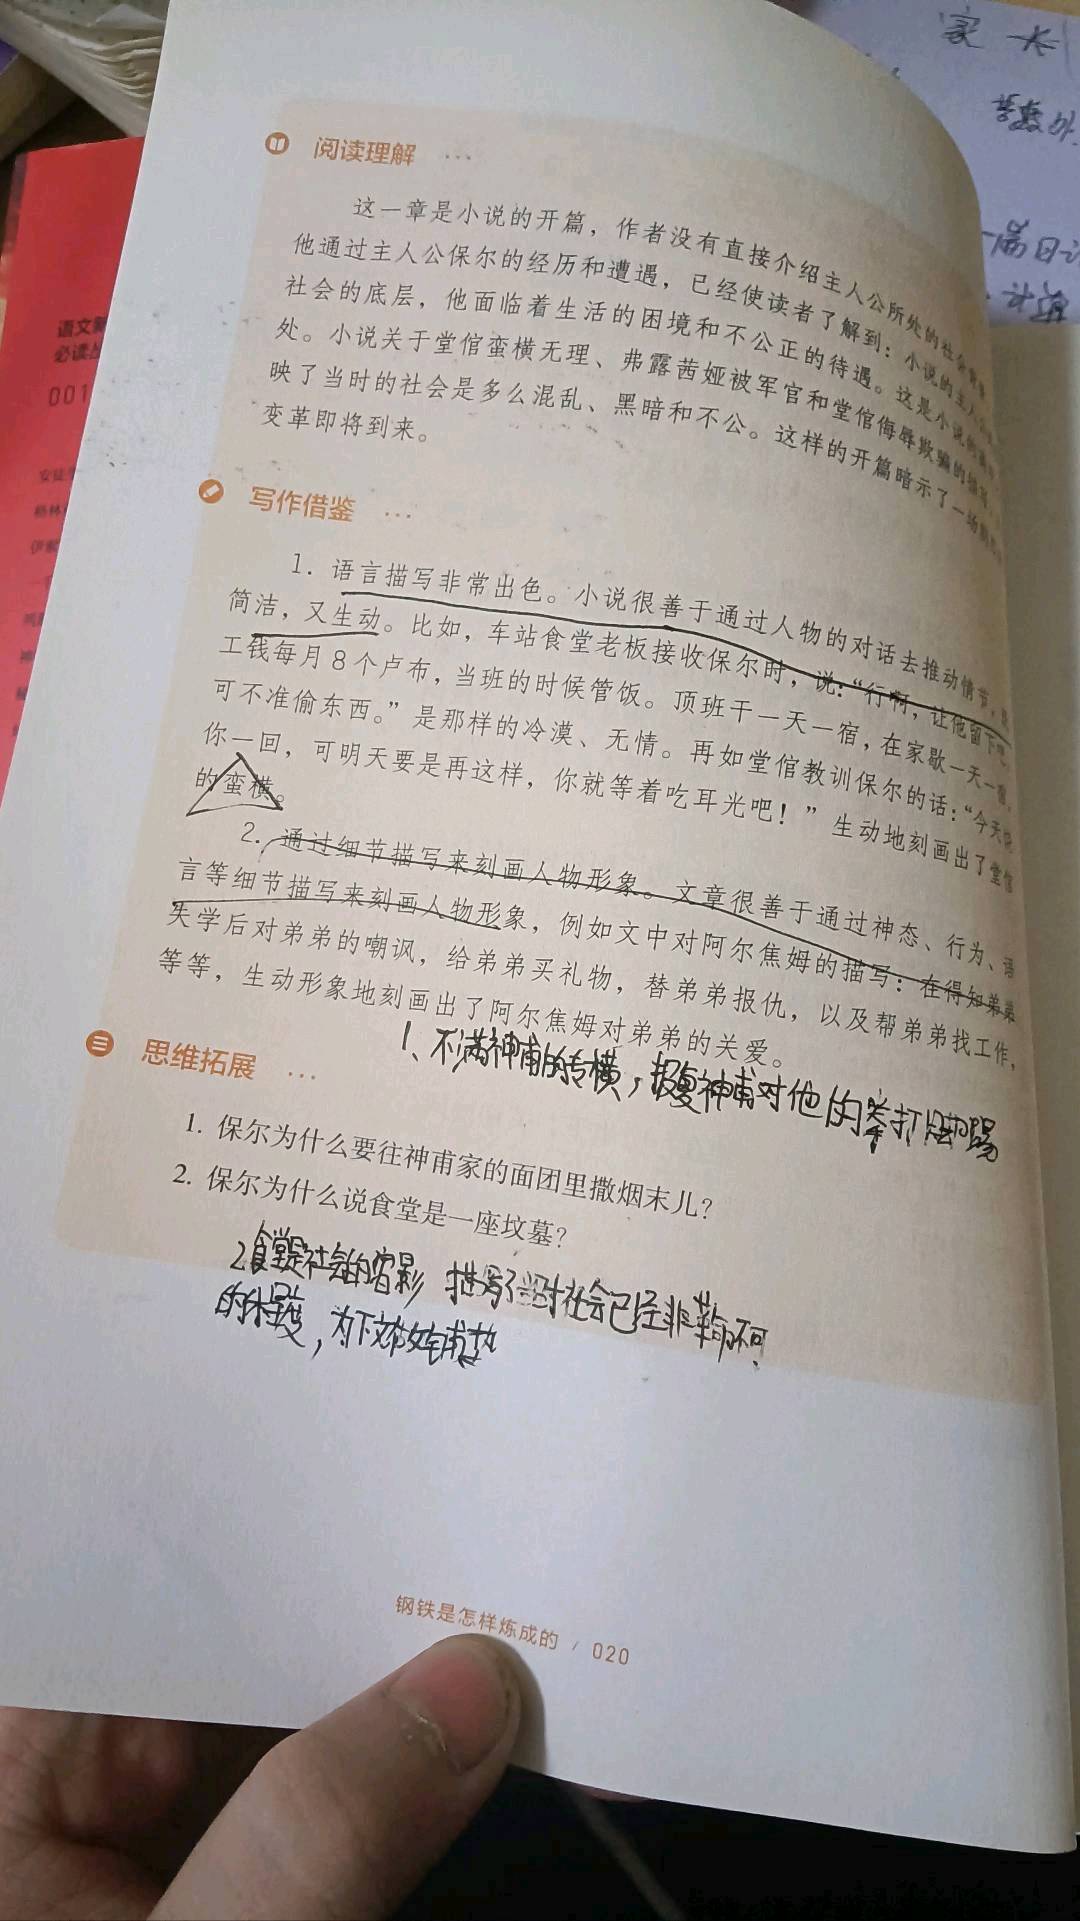 家长
语文新
必读丛
001
阅读理解 …
这一章是小说的开篇，作者没有直接介绍主人公所处的社会
他通过主人公保尔的经历和遭遇，已经使读者了解到：小说的主人
社会的底层，他面临着生活的困境和不公正的待遇。这是小说的
处。小说关于堂倌蛮横无理、弗露茜娅被军官和堂倌侮辱欺骗的描写，
映了当时的社会是多么混乱、黑暗和不公。这样的开篇暗示了一场
变革即将到来。
写作借鉴 …
1. 语言描写非常出色。小说很善于通过人物的对话去推动情节，
简洁，又生动。比如，车站食堂老板接收保尔时，说：“行啊，让他留下吧，
工钱每月8个卢布，当班的时候管饭。顶班干一天一宿，在家歇一天一宿，
可不准偷东西。”是那样的冷漠、无情。再如堂倌教训保尔的话：“今天
你一回，可明天要是再这样，你就等着吃耳光吧！”生动地刻画出了堂倌
的蛮横。
2. 通过细节描写来刻画人物形象。文章很善于通过神态、行为、语
言等细节描写来刻画人物形象，例如文中对阿尔焦姆的描写：在得知弟弟
失学后对弟弟的嘲讽，给弟弟买礼物，替弟弟报仇，以及帮弟弟找工作，
等等，生动形象地刻画出了阿尔焦姆对弟弟的关爱。
1、不满神甫的专横，报复神甫对他的拳打脚踢
思维拓展 …
1. 保尔为什么要往神甫家的面团里撒烟末儿？
2. 保尔为什么说食堂是一座坟墓？
2食堂是社会的缩影 描写了当时社会已经非革命不可
的体度，为下文故铺垫
钢铁是怎样炼成的 / 020